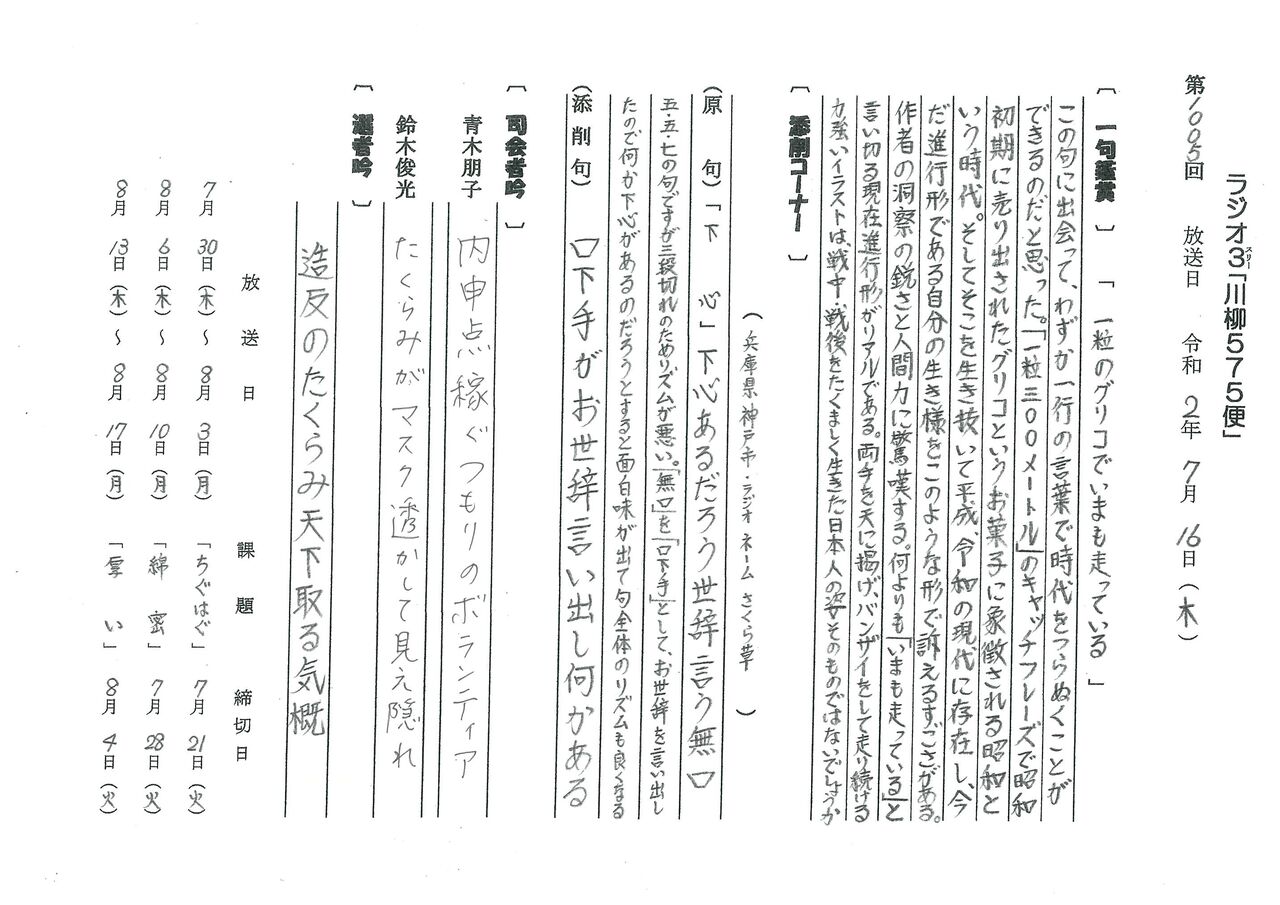 ラジオ3「川柳575便」
スリー
第1005回 放送日 令和2年7月16日(木)
〔一句鑑賞〕「一粒のグリコでいまも走っている」
この句に出会って、わずか一行の言葉で時代をつらぬくことが
できるのだと思った。「一粒三〇〇メートル」のキャッチフレーズで昭和
初期に売り出されたグリコというお菓子に象徴される昭和と
いう時代。そしてそこを生き抜いて平成、令和の現代に存在し、今
だ進行形である自分の生き様をこのような形で訴えるすごさがある。
作者の洞察の鋭さと人間力に驚嘆する。何よりも「いまも走っている」と
言い切る現在進行形がリアルである。両手を天に掲げ、バンザイをして走り続ける
力強いイラストは、戦中、戦後をたくましく生きた日本人の姿そのものではないでしょうか
〔添削コーナー〕
(兵庫県神戸市・ラジオネーム さくら草)
(原句)「下心」下心あるだろう世辞言う無口
五・五・七の句ですが三段切れのためリズムが悪い。「無口」を「口下手」として、お世辞を言い出し
たので何か下心があるのだろうとすると面白味が出て句全体のリズムも良くなる
(添削句)口下手がお世辞言い出し何かある
〔司会者吟〕
青木朋子 内申点稼ぐつもりのボランティア
鈴木俊光 たくらみがマスク透かして見え隠れ
〔選者吟〕
造反のたくらみ天下取る気概
放送日 課題 締切日
7月30日(木)〜8月3日(月)「ちぐはぐ」7月21日(火)
8月6日(木)〜8月10日(月)「綿密」7月28日(火)
8月13日(木)〜8月17日(月)「厚い」8月4日(火)